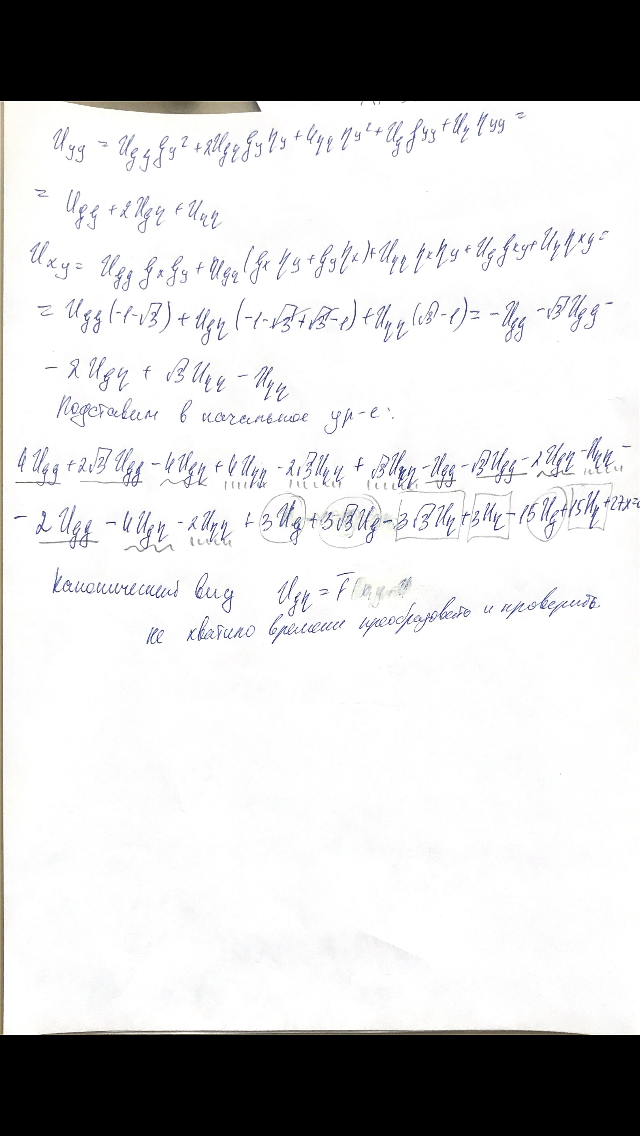 Uyy = Uξξ ξy² + 2Uξη ξy ηy + Uηη ηy² + Uξ ξyy + Uη ηyy =
= Uξξ + 2Uξη + Uηη
Uxy = Uξξ ξx ξy + Uξη (ξx ηy + ξy ηx) + Uηη ηx ηy + Uξ ξxy + Uη ηxy =
= Uξξ (-1-√3) + Uξη (-1-√3+√3-1) + Uηη (√3-1) = -Uξξ - √3Uξξ -
- 2Uξη + √3Uηη - Uηη
Подставим в начальное ур-е:
4Uξξ + 2√3Uξξ - 4Uξη + 4Uηη - 2√3Uηη + √3Uηη - Uξξ - √3Uξξ - 2Uξη - Uηη -
- 2Uξξ - 4Uξη - 2Uηη + 3Uξ + 3√3Uξ - 3√3Uη + 3Uη - 15Uξ + 15Uη + 27x=0
Канонический вид Uξη = F
не хватило времени преобразовать и проверить.